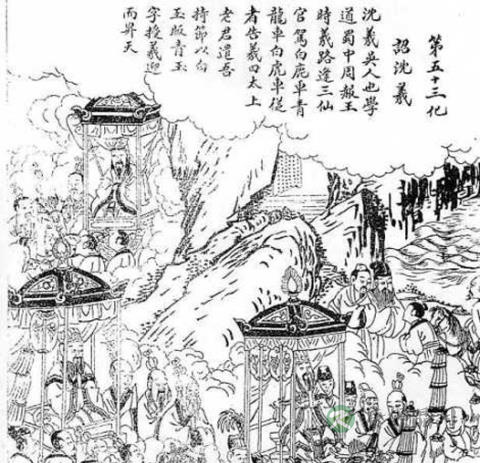 第五十三化
詔沈羲
沈羲吳人也學
道蜀中周赧王
時羲路逢三仙
官駕白鹿車青
龍車白虎車從
者告羲曰太上
老君遣吾
持節以白
玉版青玉
字授羲迎
而昇天